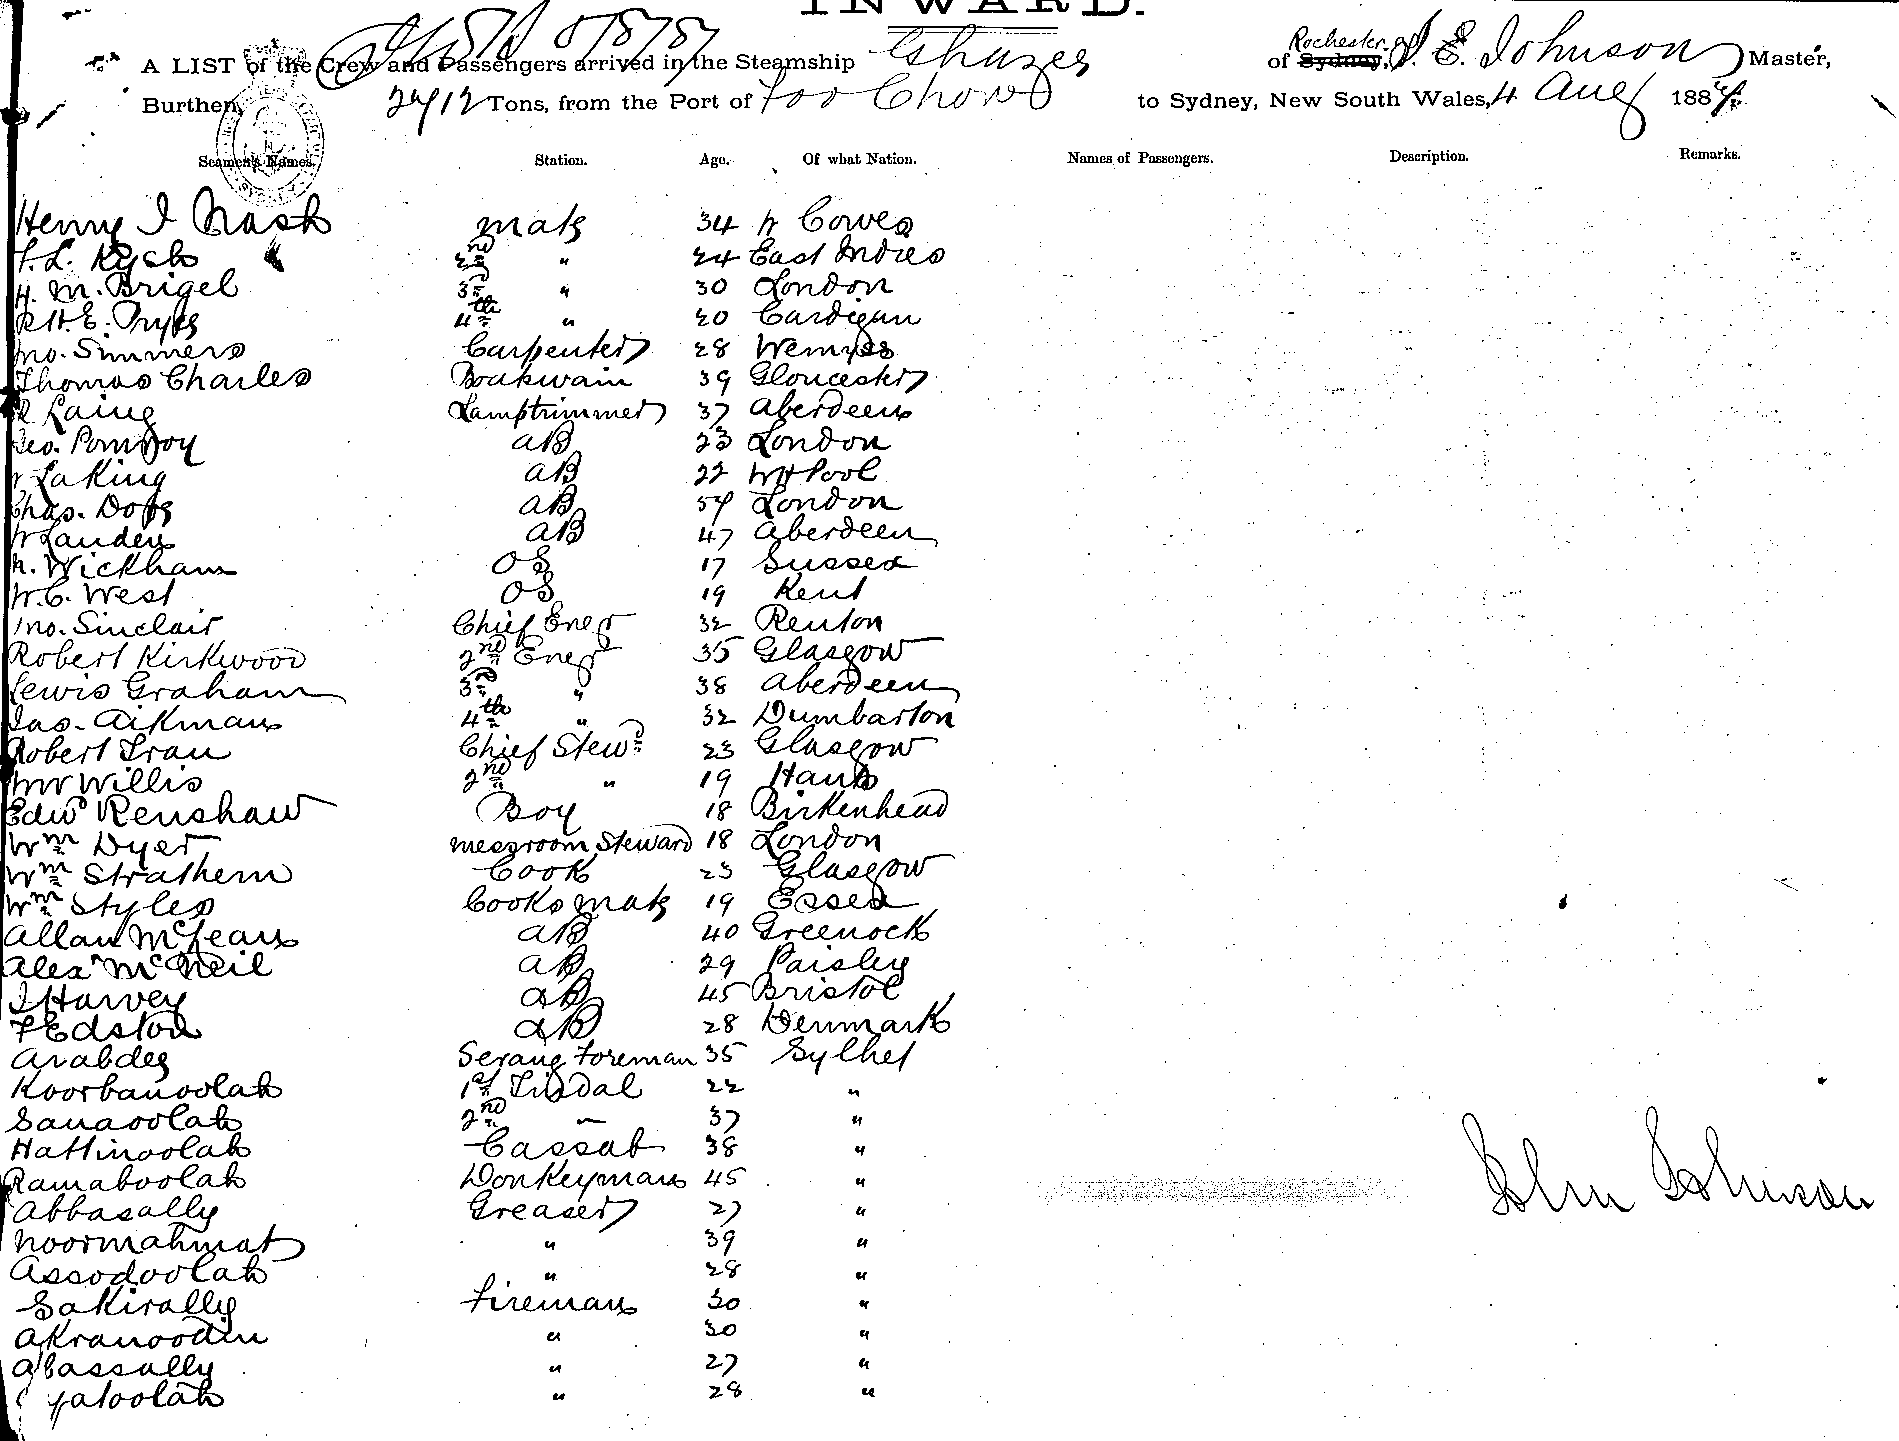 INWARD.
A LIST of the Crew and Passengers arrived in the Steamship Ghazee of Rochester, J. E. Johnson Master,
Burthen Tons, from the Port of Foo Chow to Sydney, New South Wales, 4 Aug 188
Seamen's Names. Station. Age. Of what Nation. Names of Passengers. Description. Remarks.
Henry I Nash mate 34 W Cowes
2nd " 24 East Indies
H. M. Brigel 3rd " 30 London
R H. E. Pryce 4th " 20 Cardigan
Jno. Simmers Carpenter 28 Wemyss
Thomas Charles Boatswain 39 Gloucester
R Laing Lamptrimmer 37 Aberdeen
Geo. Pomroy AB 23 London
W Laking AB 22 WHPool
Chas. AB London
W Lauder AB 47 Aberdeen
Wickham OS 17 Sussex
W. C. West OS 19 Kent
Jno. Sinclair Chief Engr 32 Renton
Robert Kirkwood 2nd Engr 35 Glasgow
Lewis Graham 3rd " 38 Aberdeen
Jas. Aikman 4th " 32 Dumbarton
Robert Chief Stewd 23 Glasgow
Willis 2nd " 19 Hants
Edwd Renshaw Boy 18 Birkenhead
Wm Dyer messroom Steward 18 London
Wm Strathern Cook 23 Glasgow
Wm Styles Cooks mate 19 Essex
Allan McLean AB 40 Greenock
Alexr McNeil AB 29 Paisley
J Harvey AB 45 Bristol
F Edston AB 28 Denmark
Arabdee Serang Foreman 35 Sylhet
Koorbanoolah 1st Tindal 22 "
Sanaoolah 2nd " 37 "
Hattinoolah Cassab 38 "
Ramaboolah Donkeyman 45 "
Abbasally Greaser 27 "
Noormahmat " 39 "
Assodoolah " 28 "
Sakirally Fireman 30 "
Akranoodin " 30 "
Abassally " 27 "
" 28 "
John Johnson